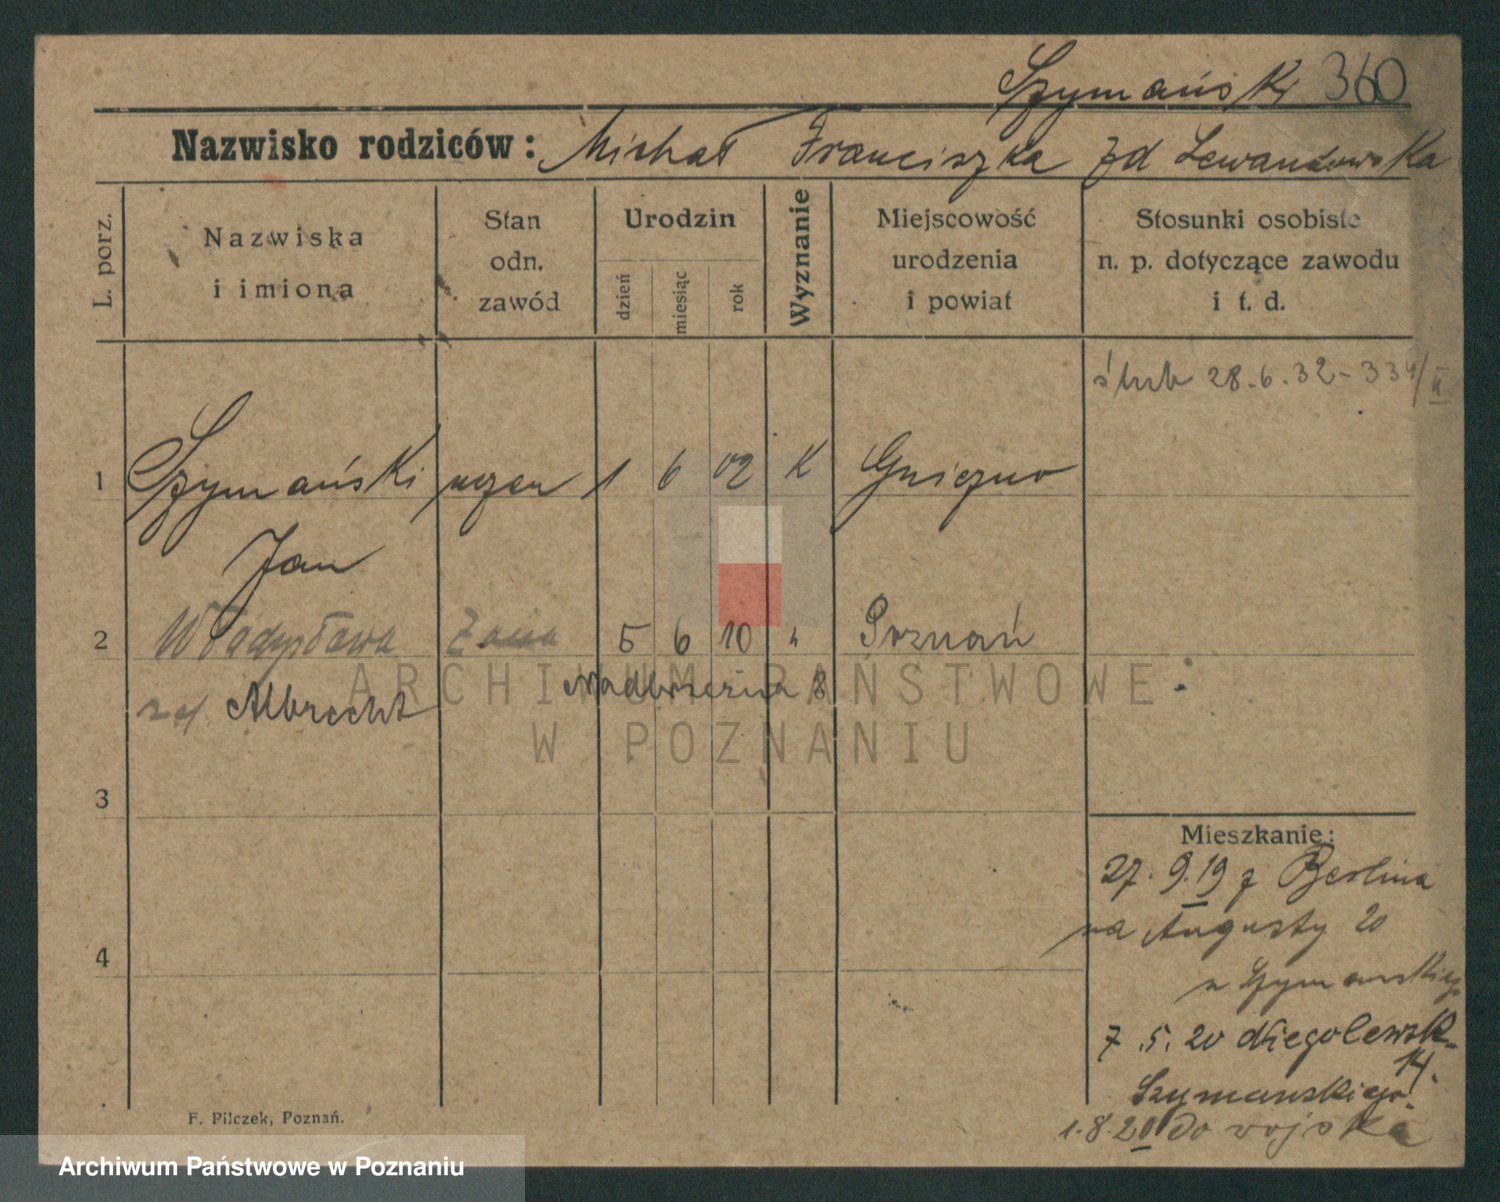 Szymański 360
Nazwisko rodziców: Michał Franciszka zd Lewandowska
L. porz.
Nazwiska
i imiona
Stan
odn.
zawód
Urodzin
dzień
miesiąc
rok
Wyznanie
Miejscowość
urodzenia
i powiat
Stosunki osobiste
n. p. dotyczące zawodu
i t. d.
ślub 28.6.32 - 334/II
1 Szymański uczen 1 6 02 K Gniezno
Jan
2 Władysława żona 5 6 10 " Poznań
zd Albrecht Nadbrzeżna 8
3
Mieszkanie:
27.9.19 z Berlina
na Augusty 20
u Szymańskiego
4
7.5.20 Niegolewsk-
14.
Szymanskiego.
1.8.20 do wojska
F. Pilczek, Poznań.
ARCHIWUM PAŃSTWOWE
W POZNANIU
Archiwum Państwowe w Poznaniu